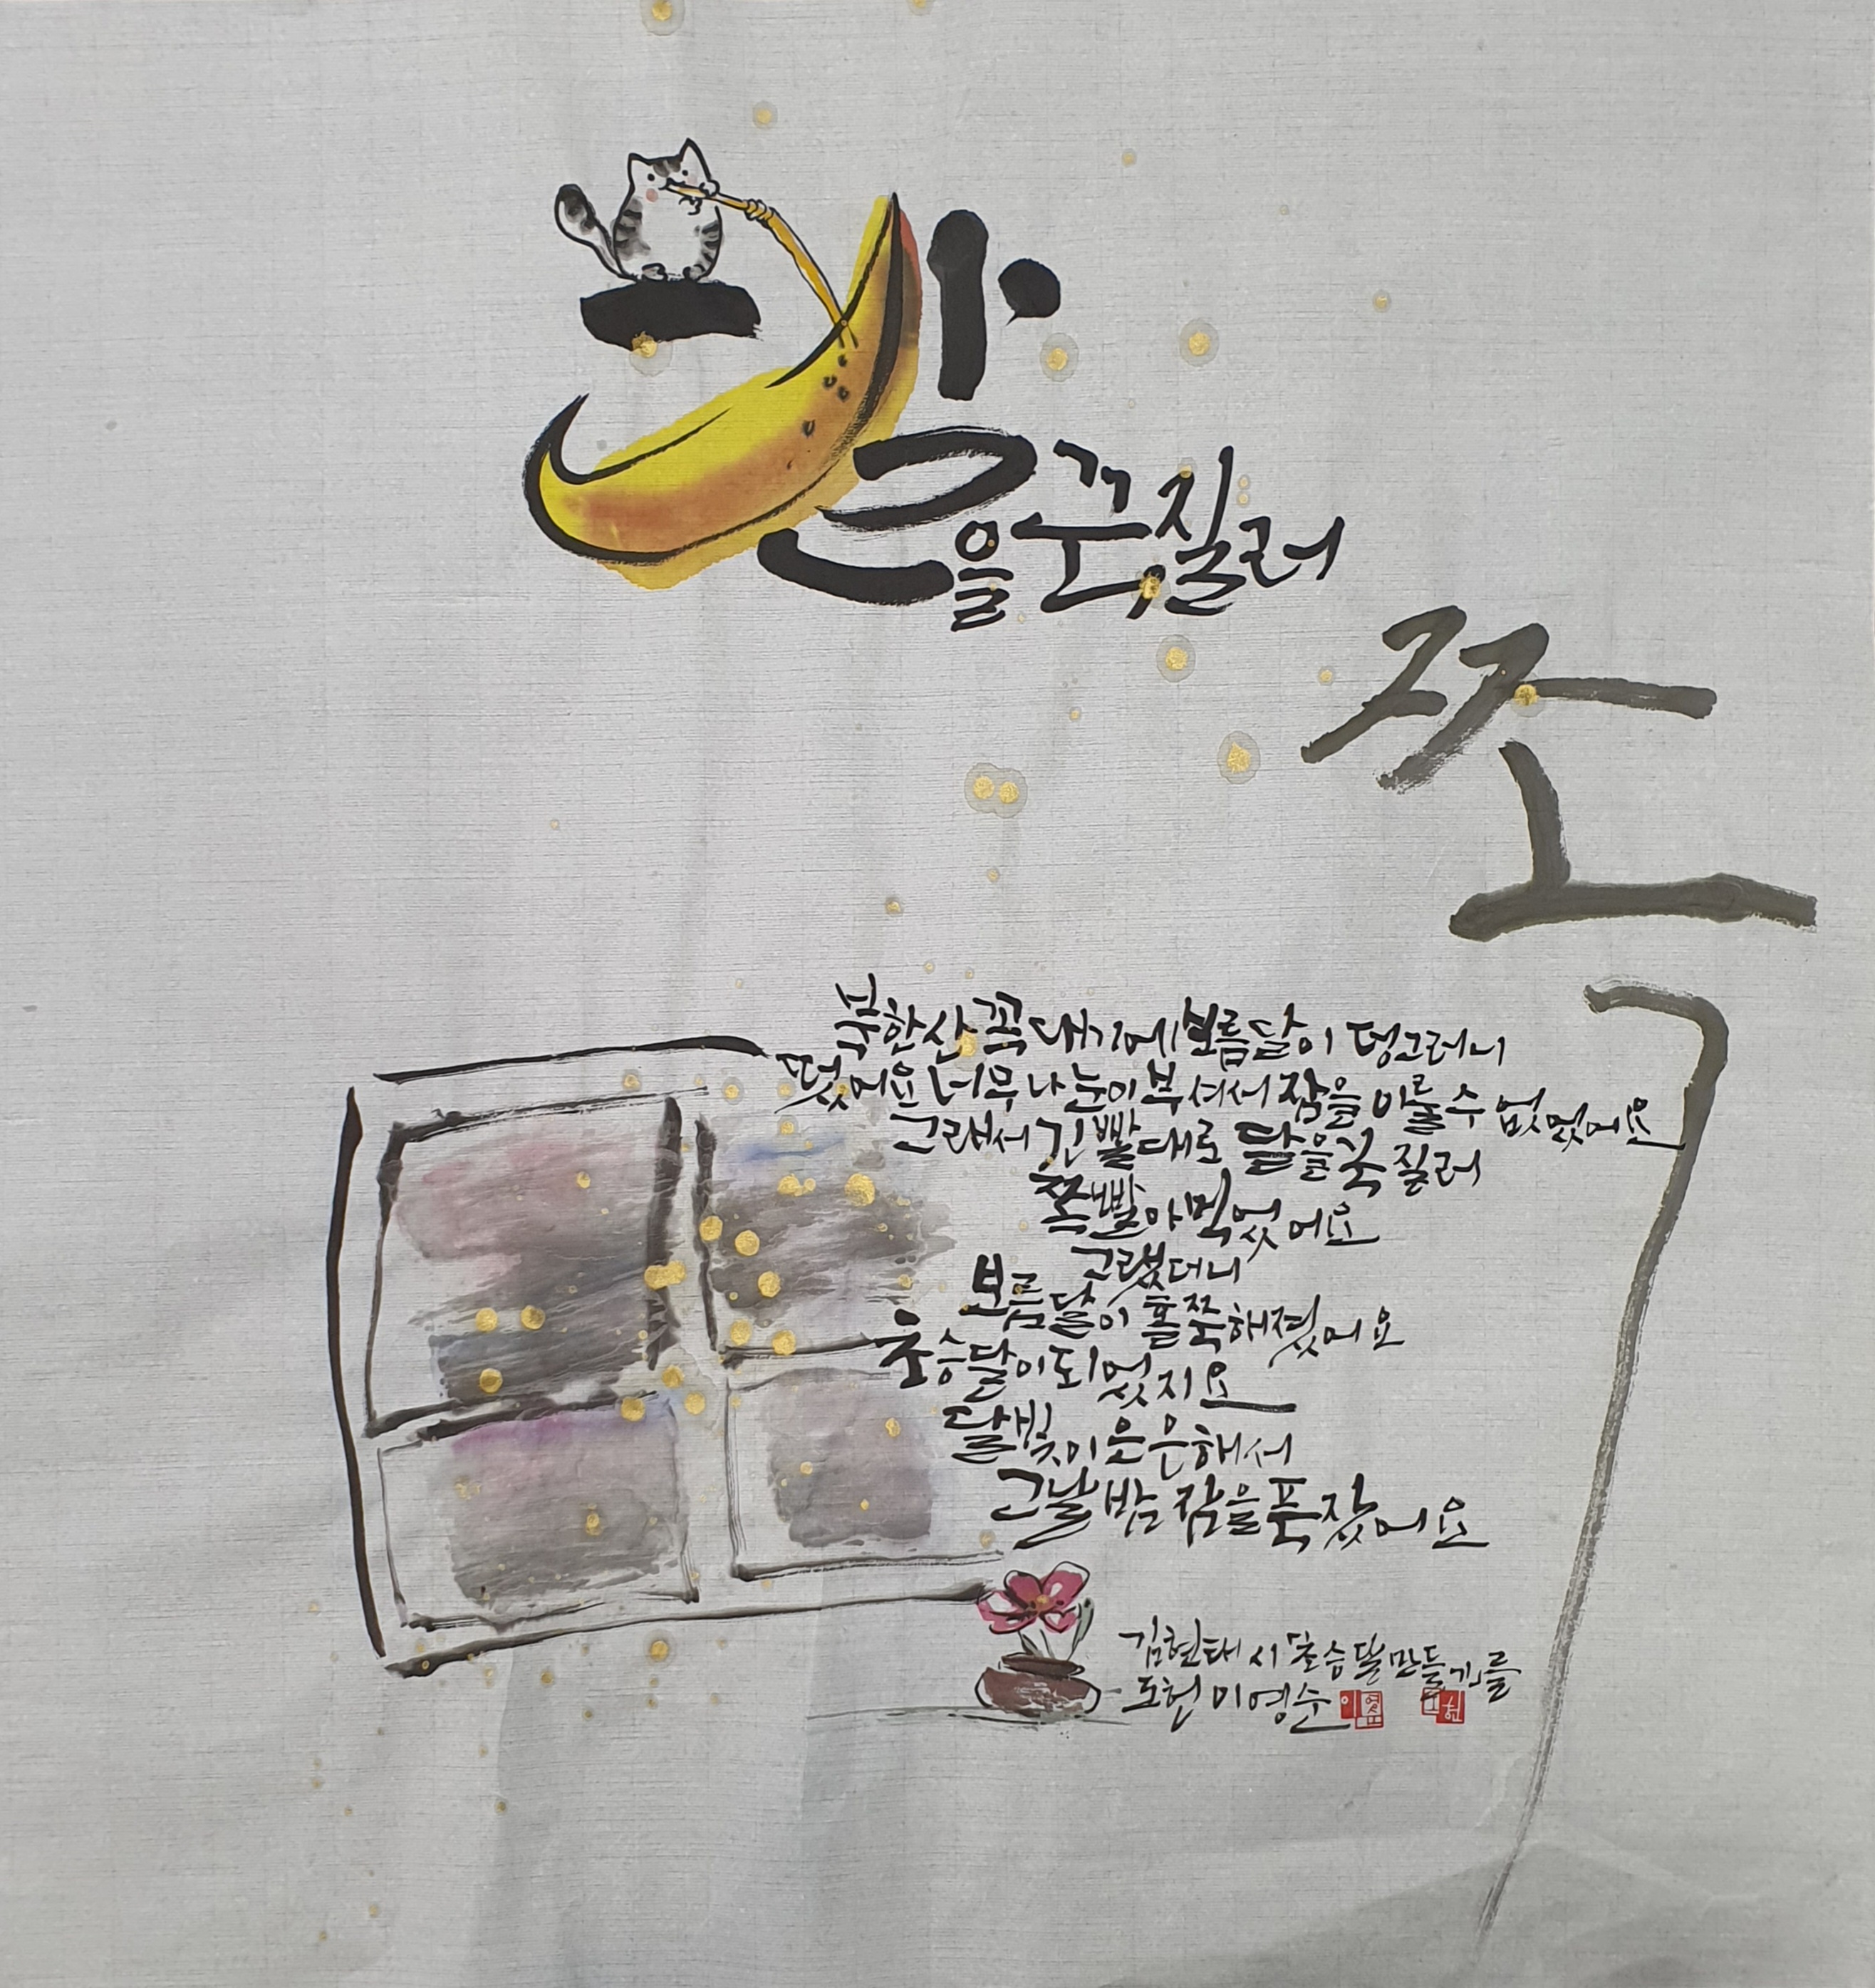 달을 꾹 질러
쪽
북한산 꼭대기에 보름달이 덩그러니
떴어요 너무나 눈이 부셔서 잠을 이룰 수 없었어요
그래서 긴 빨대로 달을 꾹 질러
쪽 빨아 먹었어요
그랬더니
보름달이 홀쭉해졌어요
초승달이 되었지요
달빛이 은은해서
그날 밤 잠을 푹 잤어요
김현태 시 초승달 만들기를
도헌 이영순